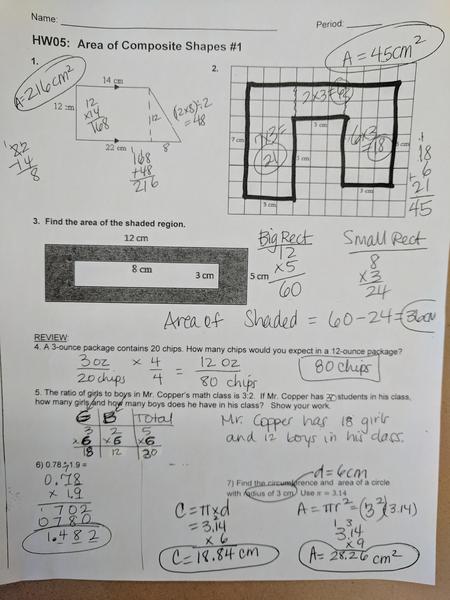 Name: Period:
HW05: Area of Composite Shapes #1
1.
A=216cm²
14 cm
12 cm
12
x14
168
12
(12x8)÷2
=48
22 cm
8
22
-14
8
168
+48
216
2.
A = 45cm²
2x3=6
3 cm
7 cm
7x3=
21
5 cm
6x3
=18
3 cm
3 cm
18
6
+21
45
3. Find the area of the shaded region.
12 cm
8 cm
3 cm
5 cm
Big Rect
12
x5
60
Small Rect
8
x3
24
Area of Shaded = 60-24=36cm
REVIEW:
4. A 3-ounce package contains 20 chips. How many chips would you expect in a 12-ounce package?
3oz
20 chips
x 4
4
= 12 oz
80 chips
80 chips
5. The ratio of girls to boys in Mr. Copper's math class is 3:2. If Mr. Copper has 30 students in his class,
how many girls and how many boys does he have in his class? Show your work.
G B Total
3 2 5
x6 x6 x6
18 12 30
Mr. Copper has 18 girls
and 12 boys in his class.
6) 0.78 · 1.9 =
0.78
x 1.9
1702
0780
1.482
d=6cm
7) Find the circumference and area of a circle
with radius of 3 cm. Use π = 3.14
C = πxd
= 3.14
x 6
C = 18.84 cm
A = πr² = (3²)(3.14)
3.14
x 9
A = 28.26 cm²